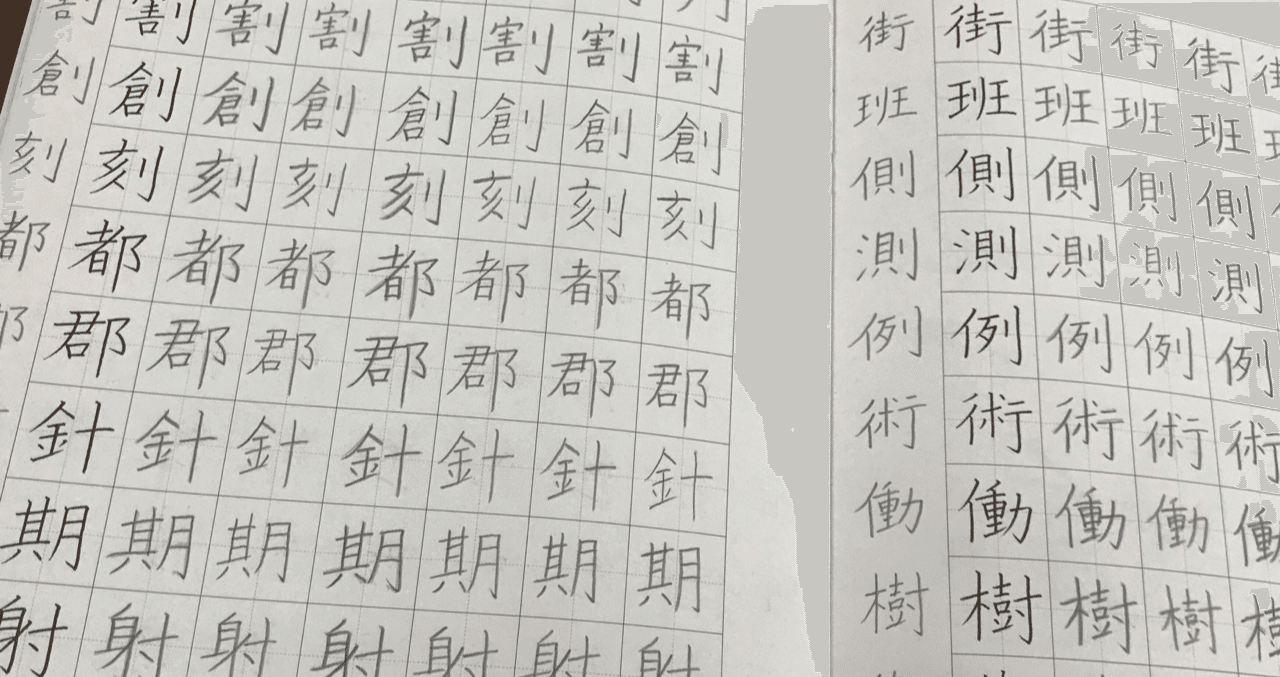 割割割割割割割
創創創創創創創創
刻刻刻刻刻刻刻刻
都都都都都都都都
郡郡郡郡郡郡郡
針針針針針針針
期期期期期期期
射射射射射射射
街街街街街
班班班班班
側側側側側
測測測測測
例例例例例
術術術術術
働働働働働
樹樹樹樹樹